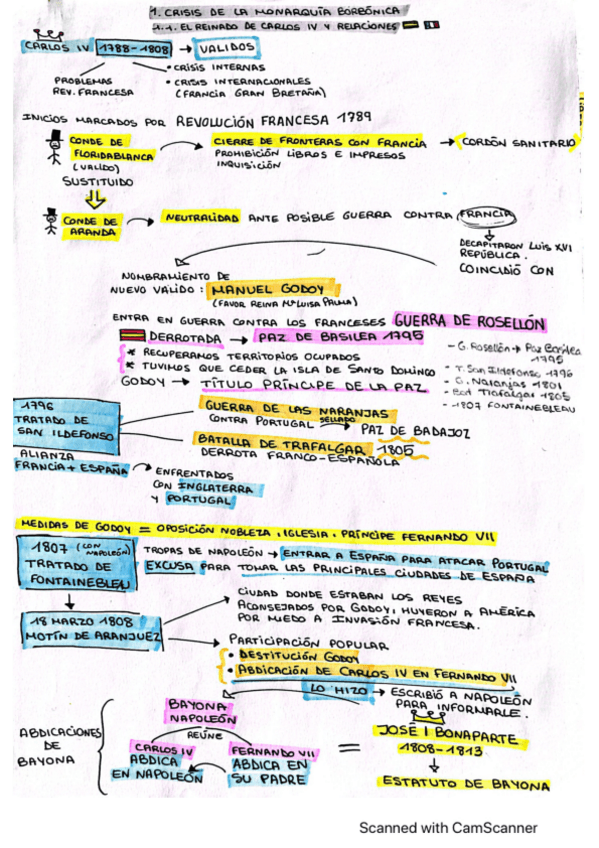 1. CRISIS DE LA MONARQUÍA BORBÓNICA
1.1. EL REINADO DE CARLOS IV Y RELACIONES
CARLOS IV 1788-1808 → VALIDOS
PROBLEMAS
REV. FRANCESA
• CRISIS INTERNAS
• CRISIS INTERNACIONALES
(FRANCIA GRAN BRETAÑA)
INICIOS MARCADOS POR REVOLUCIÓN FRANCESA 1789
CONDE DE
FLORIDABLANCA
(VALIDO)
SUSTITUIDO
CIERRE DE FRONTERAS CON FRANCIA → CORDÓN SANITARIO
PROHIBICIÓN LIBROS E IMPRESOS
INQUISICIÓN
CONDE DE
ARANDA
NEUTRALIDAD ANTE POSIBLE GUERRA CONTRA FRANCIA
DECAPITARON LUIS XVI
REPÚBLICA.
COINCIDIÓ CON
NOMBRAMIENTO DE
NUEVO VALIDO: MANUEL GODOY
(FAVOR REINA Mª LUISA PALMA)
ENTRA EN GUERRA CONTRA LOS FRANCESES GUERRA DE ROSELLÓN
DERROTADA → PAZ DE BASILEA 1795
* RECUPERAMOS TERRITORIOS OCUPADOS
* TUVIMOS QUE CEDER LA ISLA DE SANTO DOMINGO
GODOY → TÍTULO PRÍNCIPE DE LA PAZ
- G. Rosellón → Paz Basilea
1795
- T. San Ildefonso 1796
- G. Naranjas 1801
- Bat Trafalgar 1805
- 1807 FONTAINEBLEAU
1796
TRATADO DE
SAN ILDEFONSO
GUERRA DE LAS NARANJAS
CONTRA PORTUGAL SELLADO → PAZ DE BADAJOZ
BATALLA DE TRAFALGAR 1805
DERROTA FRANCO-ESPAÑOLA
ALIANZA
FRANCIA + ESPAÑA
ENFRENTADOS
CON INGLATERRA
Y PORTUGAL
MEDIDAS DE GODOY = OPOSICIÓN NOBLEZA, IGLESIA, PRÍNCIPE FERNANDO VII
1807 (CON NAPOLEÓN)
TRATADO DE
FONTAINEBLEU
TROPAS DE NAPOLEÓN → ENTRAR A ESPAÑA PARA ATACAR PORTUGAL
EXCUSA PARA TOMAR LAS PRINCIPALES CIUDADES DE ESPAÑA
18 MARZO 1808
MOTÍN DE ARANJUEZ
CIUDAD DONDE ESTABAN LOS REYES
ACONSEJADOS POR GODOY, HUYERON A AMÉRICA
POR MIEDO A INVASIÓN FRANCESA.
PARTICIPACIÓN POPULAR
• DESTITUCIÓN GODOY
• ABDICACIÓN DE CARLOS IV EN FERNANDO VII
LO HIZO → ESCRIBIÓ A NAPOLEÓN
PARA INFORMARLE.
ABDICACIONES
DE
BAYONA
BAYONA
NAPOLEÓN
REÚNE
CARLOS IV
ABDICA
EN NAPOLEÓN
FERNANDO VII
ABDICA EN
SU PADRE
=
JOSÉ I BONAPARTE
1808-1813
ESTATUTO DE BAYONA
Scanned with CamScanner